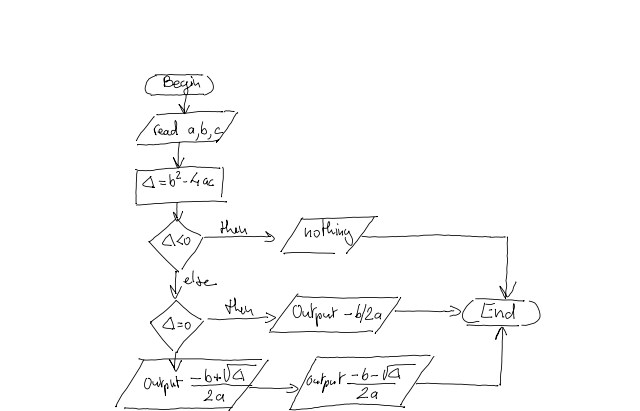 Begin
read a,b,c
Δ=b²-4ac
Δ<0
then
nothing
else
Δ=0
then
Output -b/2a
End
Output =b+√Δ/2a
output -b-√Δ/2a